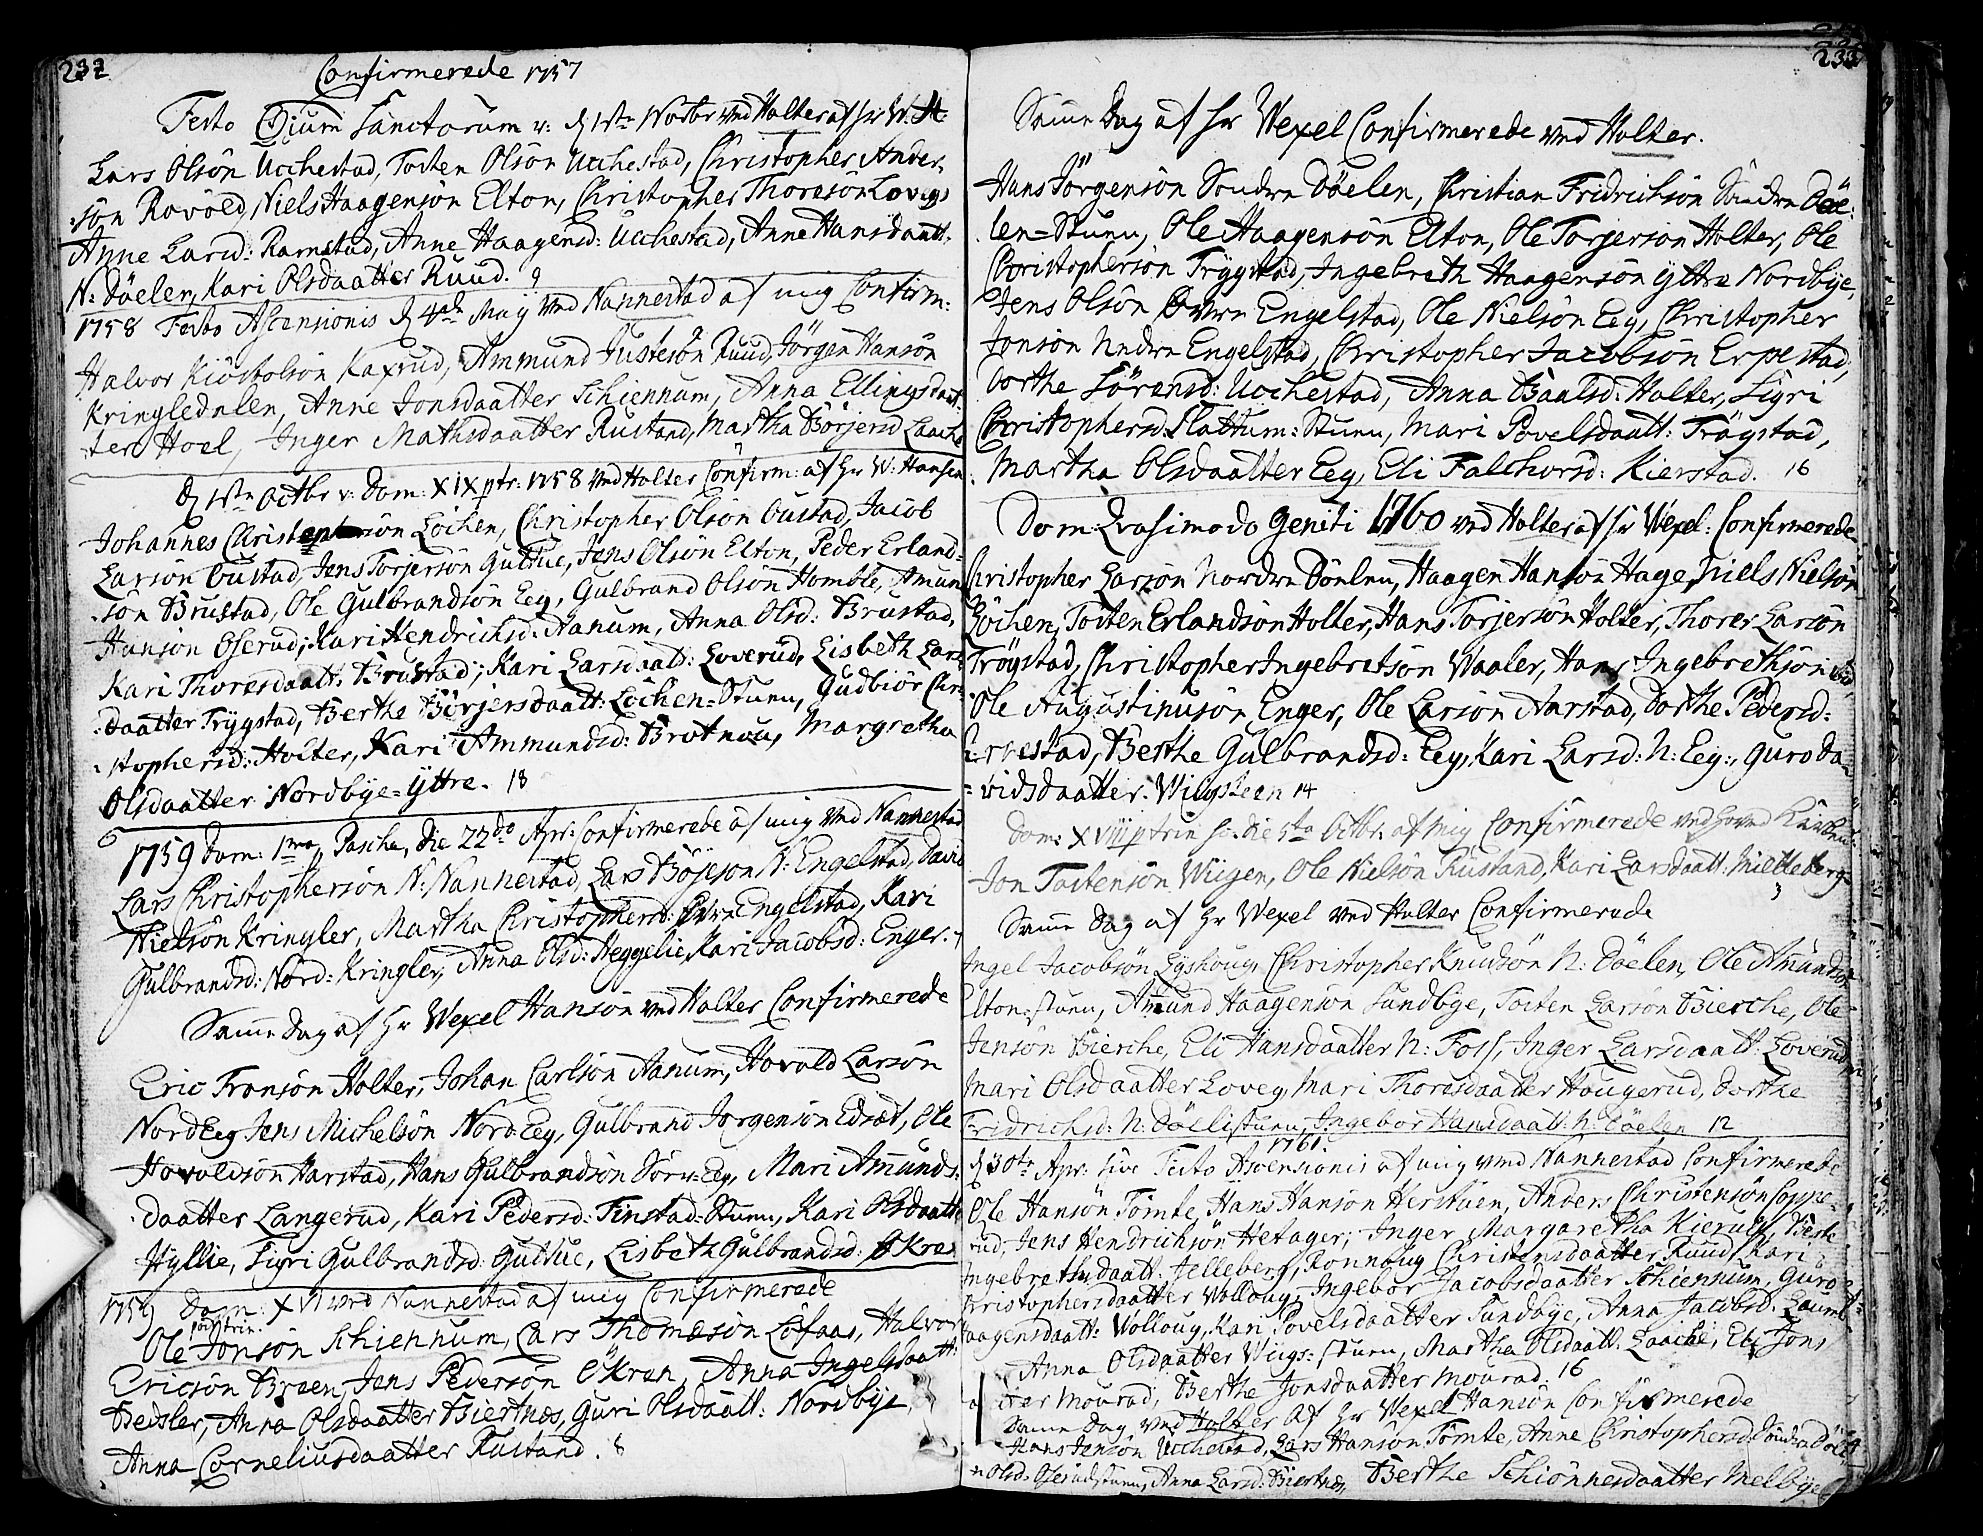 232
Confirmerede 1757
Festo Oium Sanctorum v: d 1ste Novbr ved Holter af hr W: H:
Lars Olsön Ucchestad, Tosten Olsön Ucchestad, Christopher Ander-
sön Rovold, Niels Haagensön Elton, Christopher Thoresön Loveg
Anne Larsd: Ramstad, Anne Haagensd: Ucchestad, Anne Hansdaatt.
N: Döelen, Kari Olsdaatter Ruud. 9
1758 Festo Ascensionis d 4de Maij ved Nannestad af mig Confirm:
Halvor Kiöstolsön Kaxrud, Ammund Justesön Ruud, Jörgen Hansön
Kringledalen, Anne Jonsdaatter Schiennum, Anna Ellingsdaat-
ter Hoel, Inger Mathsdaatter Rustand, Martha Börjersd Laache
d 1ste Octbr v: Dom: XIX p tr: 1758 ved Holter Confirm: af hr W: Hansen
Johannes Christophersön Löchen, Christopher Olsön Oustad, Jacob
Larsön Oustad, Jens Torjersön Guthue, Jens Olsön Elton, Peder Erland-
sön Brustad, Ole Gulbrandsön Eeg, Gulbrand Olsön Homble, Amun
Hansön Oserud; Kari Hendrichsd: Aanum, Anna Olsd: Brustad,
Kari Thoresdaatt: Brustad; Kari Larsdaatt: Loverud, Lisbeth Lars
daatter Trygstad, Berthe Börjersdaatt: Löchen-Stuen, Gudbiör Chri-
stophersd: Holter, Kari Ammundsd: Brotnou, Margretha
Olsdaatter Nordbye-Yttre. 18
1759 Dom: 1ma p Pascha, die 22do Apr: Confirmerede af mig ved Nannestad
Lars Christophersön N: Nannestad, Lars Böjeson N: Engelstad, David
Nielsön Kringler, Martha Christophersd: Övre Engelstad, Kari
Gulbrandsd: Nord: Kringler, Anna Olsd: Heggelie, Kari Jacobsd: Enger. 7
Samme Dag af hr Wexel Hansön ved Holter Confirmerede
Eric Tronsön Holter, Johan Carlsön Aanum, Hovold Larsön
Nord Eeg Jens Michelsön Nord Eeg, Gulbrand Jorgensön Edsaet, Ole
Hovoldsön Harstad, Hans Gulbrandsön Sör-Eeg, Mari Amunds-
daatter Langerud, Kari Pedersd: Finstad-Stuen, Kari Olsdaatte
Hyllie, Sigri Gulbrandsd Guthue, Lisbeth Gulbrandsd: Økren
1759 Dom: XVI ved Nannestad af mig Confirmerede
post trin.
Ole Jonsön Schiennum, Lars Thomæsön Löfaas, Halvor
Ericsön Breen, Jens Pedersön Ökren, Anna Ingelsdaatt:
Beisler, Anna Olsdaatter Biertnæs, Guri Olsdaatt: Nordbye,
Anna Corneliusdaatter Rustand. 8
233
Samme Dag af hr Wexel Confirmerede ved Holter.
Hans Jörgensön Söndre Döelen, Christian Fridrichsön Söndre Döe-
len-Stuen, Ole Haagensön Elton, Ole Torjersön Holter, Ole
Christophersön Trygstad, Ingebreth Haagensön Yttre Nordbye,
Jens Olsön Övre Engelstad, Ole Nielsön Eeg, Christopher
Jonsön Nedre Engelstad, Christopher Jacobsön Erpestad,
Dorthe Sörensd: Ucchestad, Anna Baalsd: Holter, Sigri
Christophersd: Slattum-Stuen, Mari Povelsdaatt: Trögstad,
Martha Olsdaatter Eeg, Eli Falchorsd: Kierstad. 16
Dom Qvasimodo Geniti 1760 ved Holter af hr Wexel: Confirmerede
Christopher Larsön Nordre Döelen, Haagen Hansön Hage, Niels Nielsön
Löchen, Tosten Erlandsön Holter, Hans Torjersön Holter, Thorer Larsön
Tröystad, Christopher Ingebretsön Waaler, Hans Ingebrethsön ibid,
Ole Augustinusön Enger, Ole Larsön Aarstad, Dorthe Pedersd:
Berthe Gulbrandsd: Eeg, Kari Larsd: N: Eeg:, Guro Da-
vidsdaatter Wiigsteen 14
Dom: XVIII p trin h: die 5ta Octbr: af mig Confirmerede ved
Jon Tostensön Wiigen, Ole Nielsön Rustand, Kari Larsdaatt: Mütteberg
3
Samme Dag af hr Wexel ved Holter Confirmerede
Ingel Jacobsön Lyshoug, Christopher Knudsön N: Döelen, Ole Amundsön
Elton-stuen, Amund Haagensön Sundbye, Tosten Larsön Bierche, Ole
Jensön Bierche, Eli Hansdaatter N: Foss, Inger Larsdaatt: Loverud
Mari Olsdaatter Loveg, Mari Thoresdaatter Hougerud, Dorthe
Fridrichsd: N: Döelistuen, Ingebor Hansdaatt: N: Döelen 12
1761
d 30te Apr: sive Festo Ascensionis af mig ved Nannestad Confirmerede
Ole Hansön Tömte, Hans Hansön Herstuen, Anders Christensön Coppe-
rud, Jens Hendrichsön Hetager, Inger Margaretha Kierulf, Berte
Ingebrethsdaatt: Jelleberg, Ronnoug Christensdaatter Ruud, Kari
Christophersdaatter Wolloug, Ingebor Jacobsdaatter Schiennum, Guro
Haagensdaatt: Wolloug, Kari Povelsdaatter Sundbye, Anna Jacobsd. Laumb-
Anna Olsdaatter Wiigs-stuen, Martha Olsdaatt: Laache, Eli Jons
datter Mourad, Berthe Jonsdaatter Mourad. 16
Samme Dag ved Holter af hr Wexel Hansön Confirmerede
Hans Jensön Ucchestad, Lars Hansön Tömte, Anne Christophersd Söndre Döel
Olsd: Oserudstuen, Anna Larsd: Biertnæs, Berthe Schiönnesdaatter Melbye